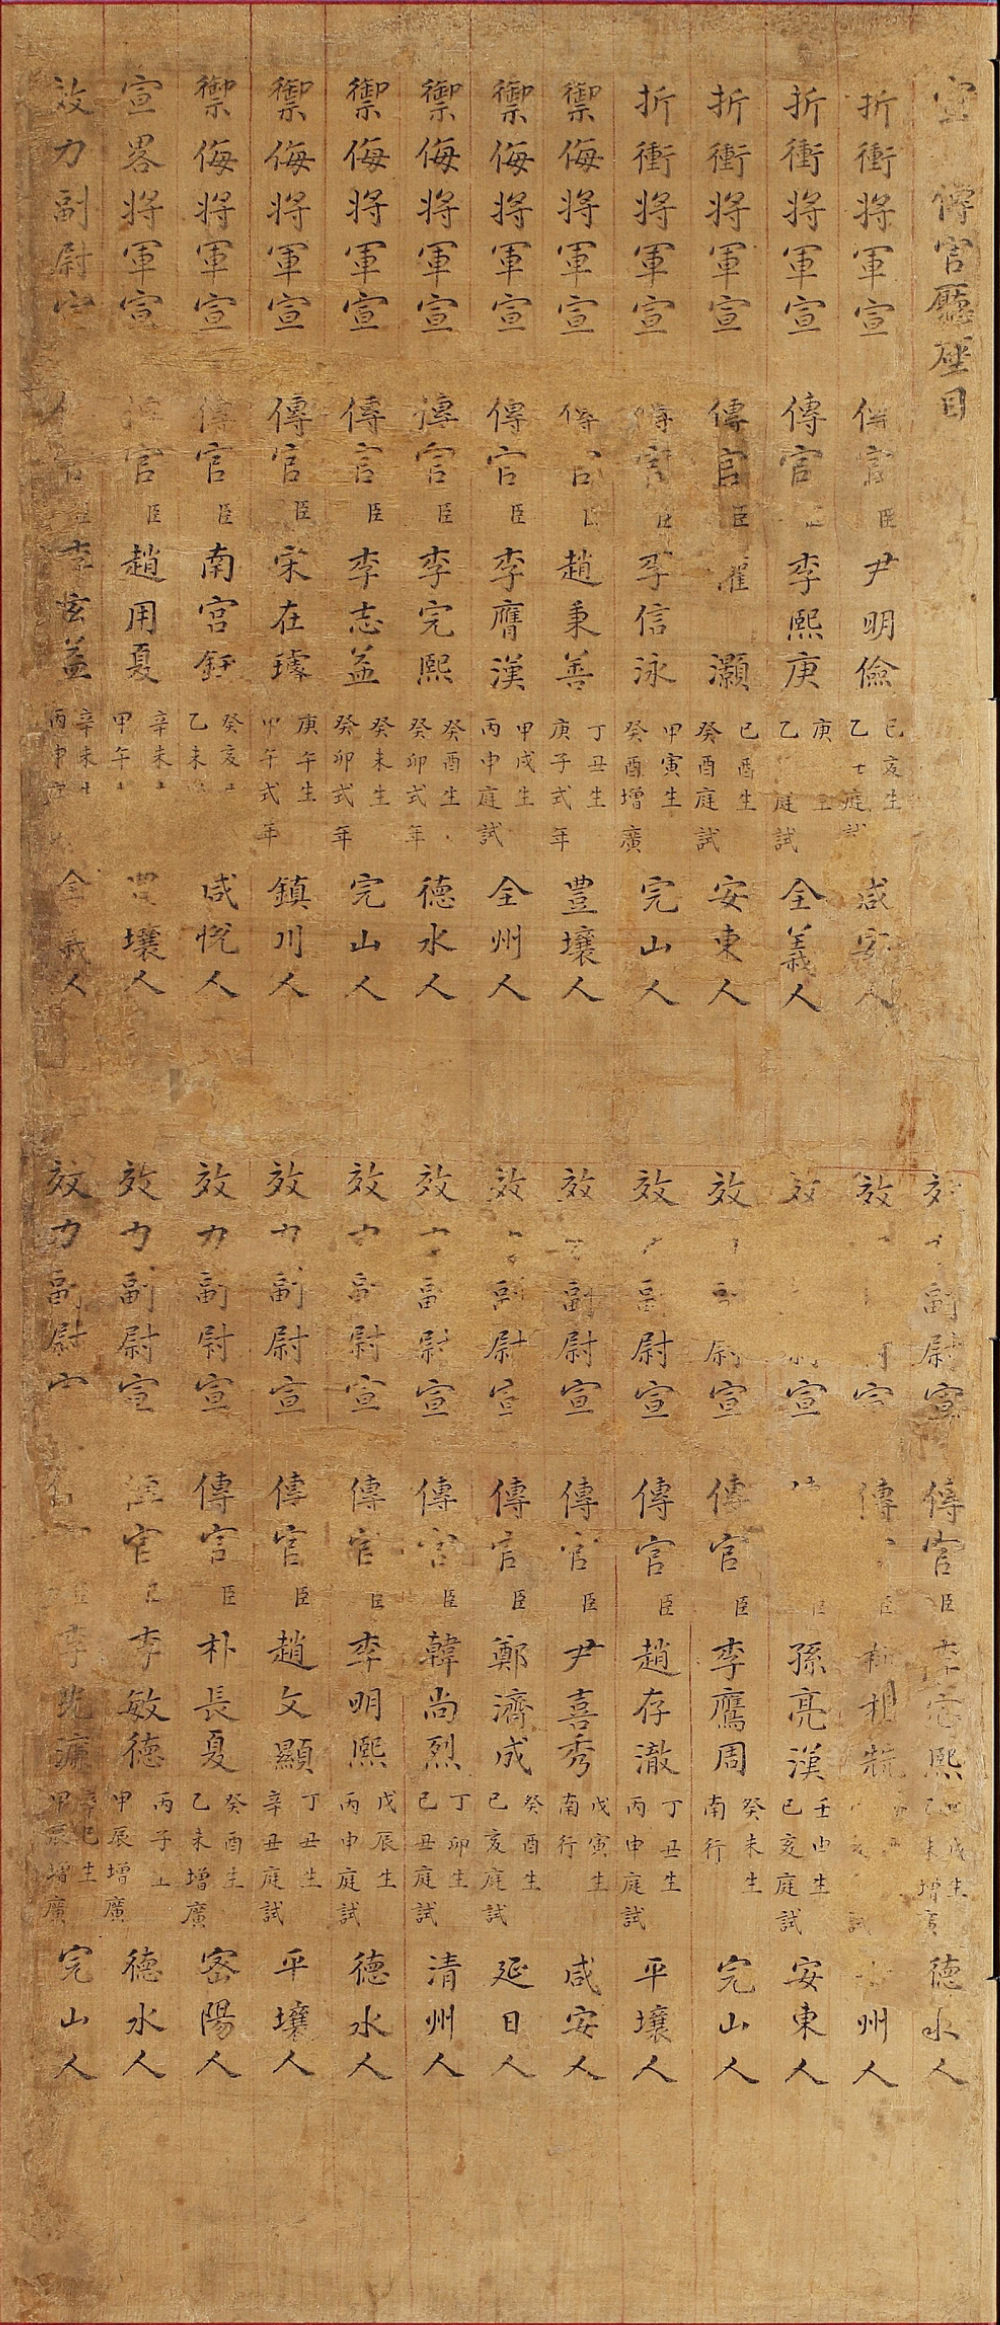 宣傳官廳座目
折衝將軍宣傳官臣尹明儉己亥生乙 庭試咸安人
折衝將軍宣傳官 李熙庚庚 生乙 庭試全義人
折衝將軍宣傳官臣 灝己酉生癸酉庭試安東人
折衝將軍宣傳官臣李信泳甲寅生癸酉增廣完山人
禦侮將軍宣傳官臣趙秉善丁丑生庚子式年豊壤人
禦侮將軍宣傳官臣李膺漢甲戌生丙申庭試全州人
禦侮將軍宣傳官臣李完熙癸酉生癸卯式年德水人
禦侮將軍宣傳官臣李志益癸未生癸卯式年完山人
禦侮將軍宣傳官臣宋在璿庚午生甲午式年鎮川人
禦侮將軍宣傳官臣南宮鈺癸亥 乙未 咸悅人
宣畧將軍宣 官臣趙用夏辛未 甲午 壤人
效力副尉宣 官 李玄益辛未生丙申 全義人
效 副尉宣傳官臣李 熙 戌生乙未增廣德水人
效 宣傳 臣 州人
效 宣 孫亮漢壬申生己亥庭試安東人
效 尉宣傳官臣李鷹周癸未生南行完山人
效 副尉宣傳官臣趙存澈丁丑生丙申庭試平壤人
效 副尉宣傳官臣尹喜秀戊寅生南行咸安人
效 副尉宣傳官臣鄭濟成癸酉生己亥庭試延日人
效 副尉宣傳官臣韓尚烈丁卯生己丑庭試清州人
效 副尉宣傳官臣李明熙戊辰生丙申庭試德水人
效力副尉宣傳官臣趙文顯丁丑生辛丑庭試平壤人
效力副尉宣傳官臣朴長夏癸酉生乙未增廣密陽人
效力副尉宣 官臣李敏德丙子生甲辰增廣德水人
效力副尉 李 濂辛巳生甲辰增廣完山人